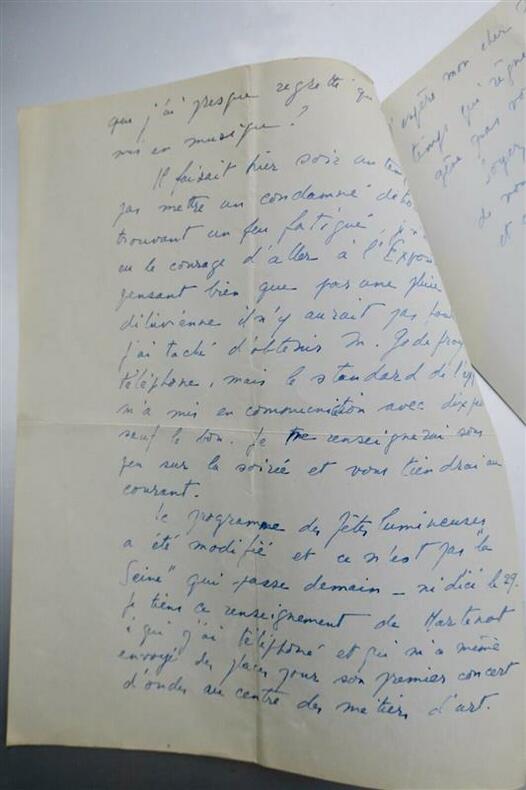 que j'ai presque regretté qu
mis en musique ?
Il faisait hier soir un tem
pas mettre un condamné deho
trouvant un peu fatigué, je n'
eu le courage d'aller à l'Expos
pensant bien que par une pluie
diluvienne il n'y aurait pas
j'ai taché d'obtenir M.
téléphone, mais le standard de l'
m'a mis en communication avec dix
sauf le bon. Je me renseignerai sous
peu sur la soirée et vous tiendrai au
courant.
Le programme des fêtes lumineuses
a été modifié et ce n'est pas "la
Seine" qui passe demain - ni d'ici le 29.
Je tiens ce renseignement de Martenot
à qui j'ai téléphoné et qui m'a même
envoyé des places pour son premier concert
d'ondes au centre des métiers d'art.
espère mon cher
temps qui règne
gêne pas
de
et